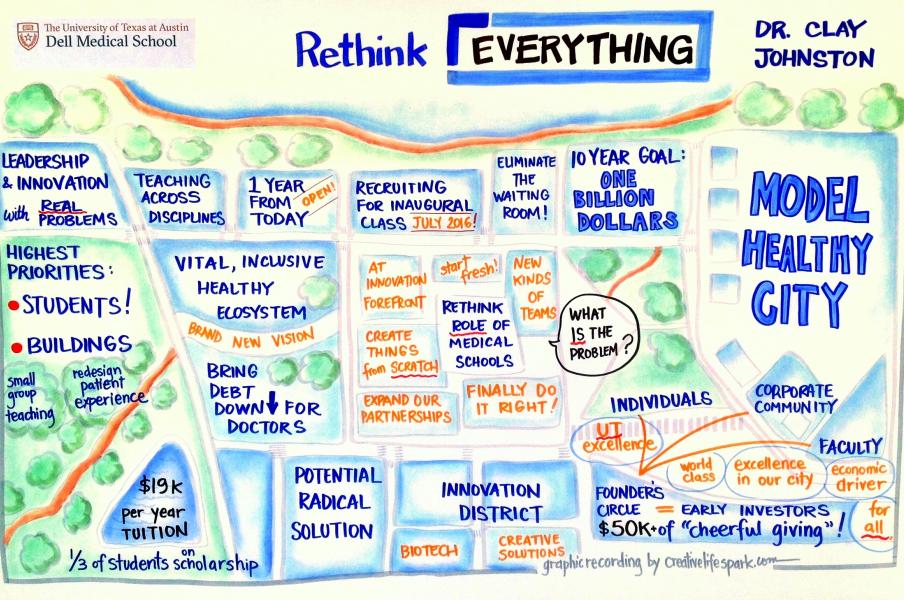 The University of Texas at Austin
Dell Medical School
Rethink EVERYTHING
DR. CLAY
JOHNSTON
LEADERSHIP
& INNOVATION
with REAL
PROBLEMS
TEACHING
ACROSS
DISCIPLINES
1 YEAR
FROM
TODAY
OPEN!
RECRUITING
FOR INAUGURAL
CLASS JULY 2016!
ELIMINATE
THE
WAITING
ROOM!
10 YEAR GOAL:
ONE
BILLION
DOLLARS
MODEL
HEALTHY
CITY
HIGHEST
PRIORITIES:
• STUDENTS!
• BUILDINGS
small
group
teaching
redesign
patient
experience
VITAL, INCLUSIVE
HEALTHY
ECOSYSTEM
BRAND NEW VISION
BRING
DEBT
DOWN↓ FOR
DOCTORS
AT
INNOVATION
FOREFRONT
start
fresh!
NEW
KINDS
OF
TEAMS
CREATE
THINGS
from SCRATCH
RETHINK
ROLE OF
MEDICAL
SCHOOLS
EXPAND OUR
PARTNERSHIPS
FINALLY DO
IT RIGHT!
WHAT
IS THE
PROBLEM?
INDIVIDUALS
CORPORATE
COMMUNITY
FACULTY
UT
excellence
world
class
excellence
in our city
economic
driver
for
all
FOUNDER'S
CIRCLE = EARLY INVESTORS
$50K+ of "cheerful giving"!
$19K
per year
TUITION
1/3 of students on scholarship
POTENTIAL
RADICAL
SOLUTION
INNOVATION
DISTRICT
BIOTECH
CREATIVE
SOLUTIONS
graphic recording by creativelifespark.com